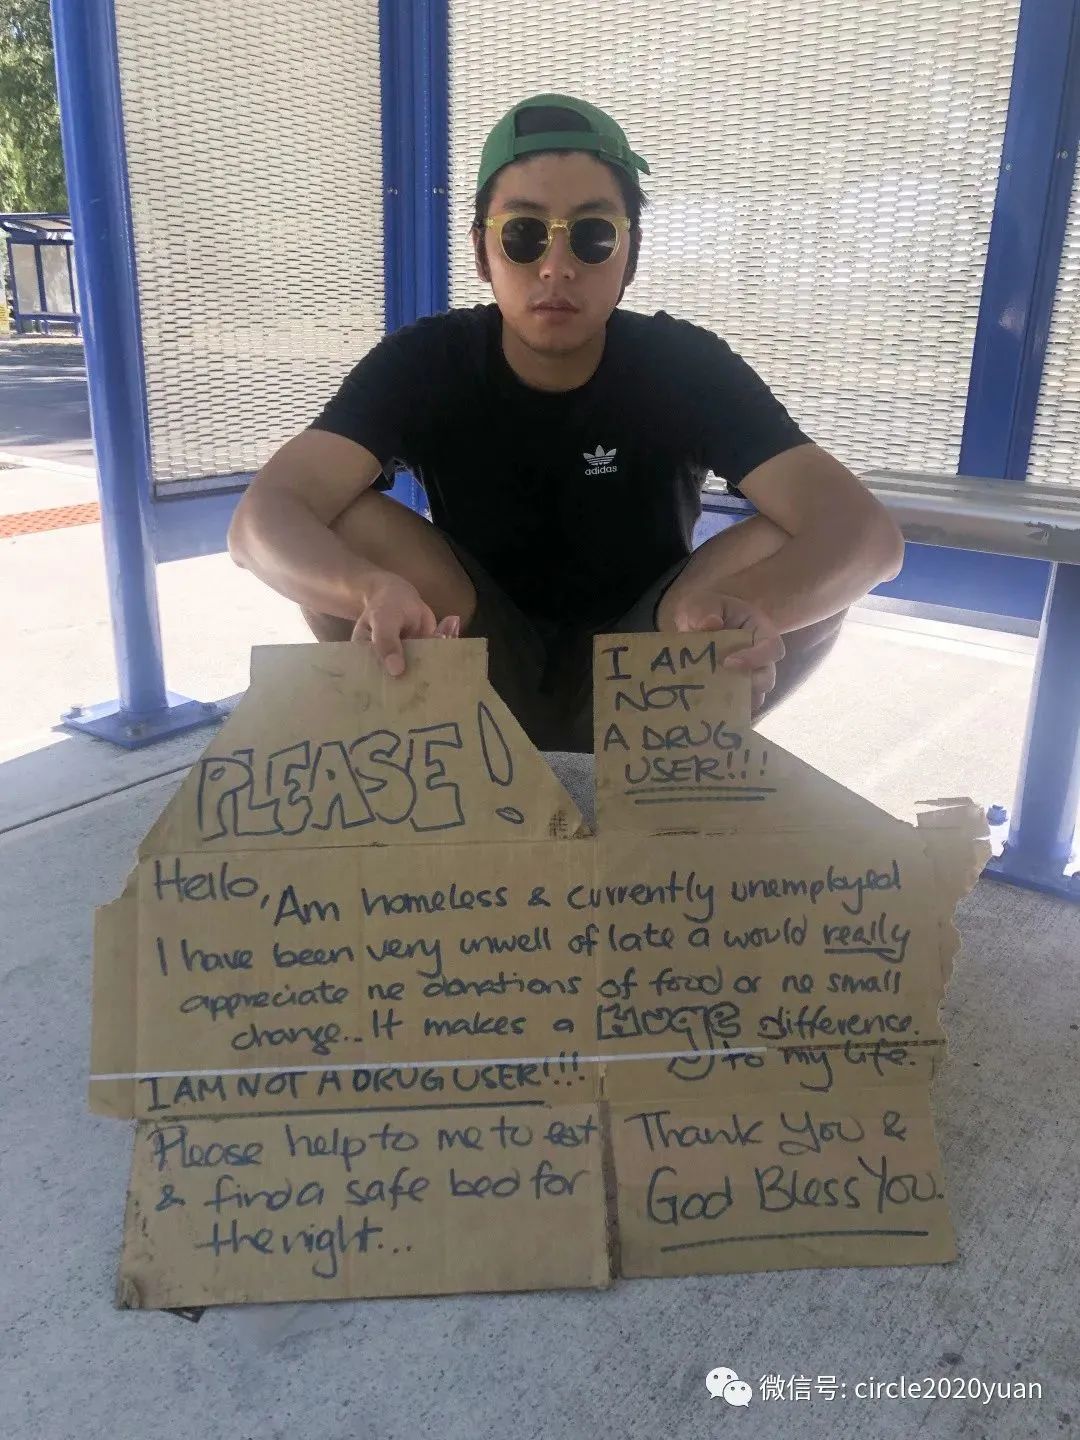 adidas
PLEASE!
I AM
NOT
A DRUG
USER!!!
Hello, Am homeless & currently unemployed
I have been very unwell of late a would really
appreciate ne donations of food or ne small
change... It makes a HUGE difference.
to my life.
I AM NOT A DRUG USER!!!
Please help to me to eat
& find a safe bed for
the night...
Thank You &
God Bless You.
微信号: circle2020yuan